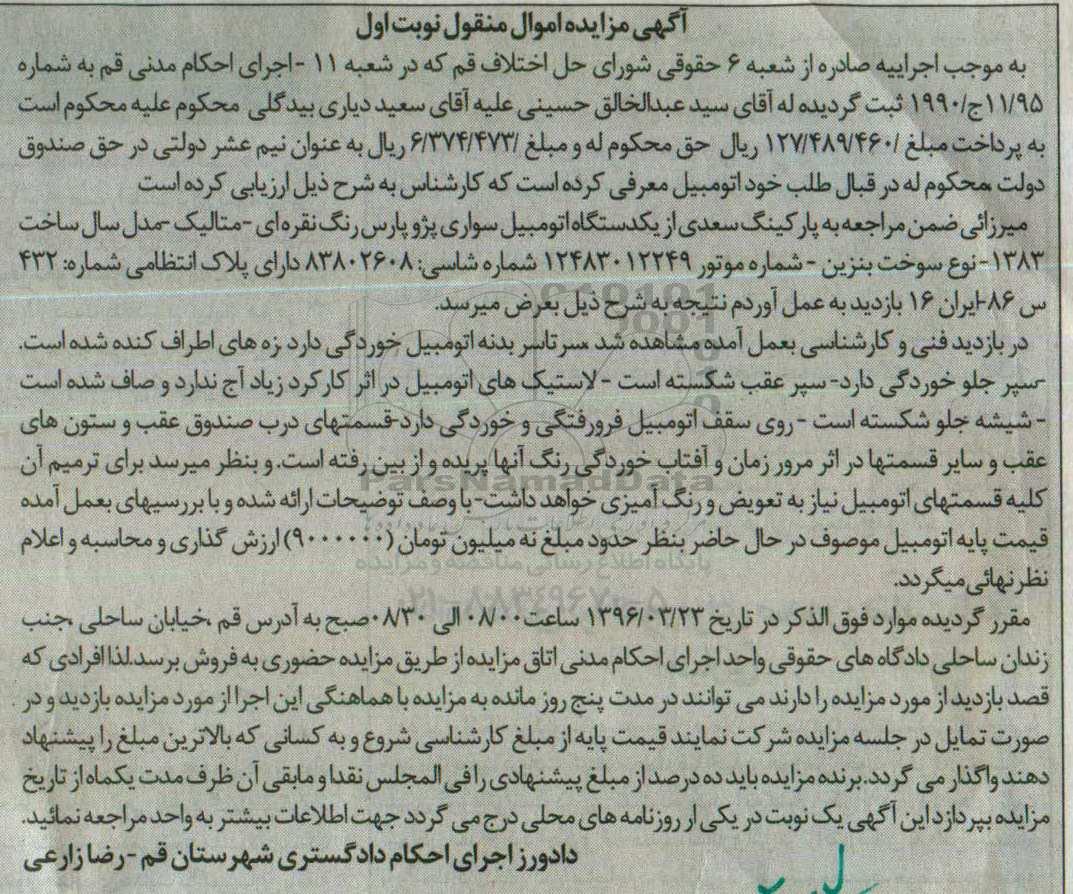 آگهی مزایده اموال منقول نوبت اول
به موجب اجراییه صادره از شعبه ۶ حقوقی شورای حل اختلاف قم که در شعبه ۱۱ -اجرای احکام مدنی قم به شماره
۱۱/۹۵ج/۱۹۹۰ ثبت گردیده له آقای سید عبدالخالق حسینی علیه آقای سعید دیاری بیدگلی محکوم علیه محکوم است
به پرداخت مبلغ /۱۲۷/۴۸۹/۴۶۰ ریال حق محکوم له و مبلغ /۶/۳۷۴/۴۷۳ ریال به عنوان نیم عشر دولتی در حق صندوق
دولت محکوم له در قبال طلب خود اتومبیل معرفی کرده است که کارشناس به شرح ذیل ارزیابی کرده است
میرزائی ضمن مراجعه به پارکینگ سعدی از یکدستگاه اتومبیل سواری پژو پارس رنگ نقره ای -متالیک -مدل سال ساخت
۱۳۸۳- نوع سوخت بنزین - شماره موتور ۱۲۴۸۳۰۱۲۲۴۹ شماره شاسی: ۸۳۸۰۲۶۰۸ دارای پلاک انتظامی شماره: ۴۳۲
س ۸۶-ایران ۱۶ بازدید به عمل آوردم نتیجه به شرح ذیل بعرض میرسد.
در بازدید فنی و کارشناسی بعمل آمده مشاهده شد ،سرتاسر بدنه اتومبیل خوردگی دارد .زه های اطراف کنده شده است.
-سپر جلو خوردگی دارد- سپر عقب شکسته است - لاستیک های اتومبیل در اثر کارکرد زیاد آج ندارد و صاف شده است
- شیشه جلو شکسته است - روی سقف اتومبیل فرورفتگی و خوردگی دارد-قسمتهای درب صندوق عقب و ستون های
عقب و سایر قسمتها در اثر مرور زمان و آفتاب خوردگی رنگ آنها پریده و از بین رفته است. و بنظر میرسد برای ترمیم آن
کلیه قسمتهای اتومبیل نیاز به تعویض و رنگ آمیزی خواهد داشت- با وصف توضیحات ارائه شده و با بررسیهای بعمل آمده
قیمت پایه اتومبیل موصوف در حال حاضر بنظر حدود مبلغ نه میلیون تومان (۹۰۰۰۰۰۰) ارزش گذاری و محاسبه و اعلام
نظر نهائی میگردد.
مقرر گردیده موارد فوق الذکر در تاریخ ۱۳۹۶/۰۳/۲۳ ساعت ۰۸/۰۰ الی ۰۸/۳۰ صبح به آدرس قم ،خیابان ساحلی ،جنب
زندان ساحلی دادگاه های حقوقی واحد اجرای احکام مدنی اتاق مزایده از طریق مزایده حضوری به فروش برسد.لذا افرادی که
قصد بازدید از مورد مزایده را دارند می توانند در مدت پنج روز مانده به مزایده با هماهنگی این اجرا از مورد مزایده بازدید و در
صورت تمایل در جلسه مزایده شرکت نمایند قیمت پایه از مبلغ کارشناسی شروع و به کسانی که بالاترین مبلغ را پیشنهاد
دهند واگذار می گردد.برنده مزایده باید ده درصد از مبلغ پیشنهادی را فی المجلس نقدا و مابقی آن ظرف مدت یکماه از تاریخ
مزایده بپردازد این آگهی یک نوبت در یکی ار روزنامه های محلی درج می گردد جهت اطلاعات بیشتر به واحد مراجعه نمائید.
دادورز اجرای احکام دادگستری شهرستان قم -رضا زارعی
ParsNamadData
پایگاه اطلاع رسانی مناقصه و مزایده